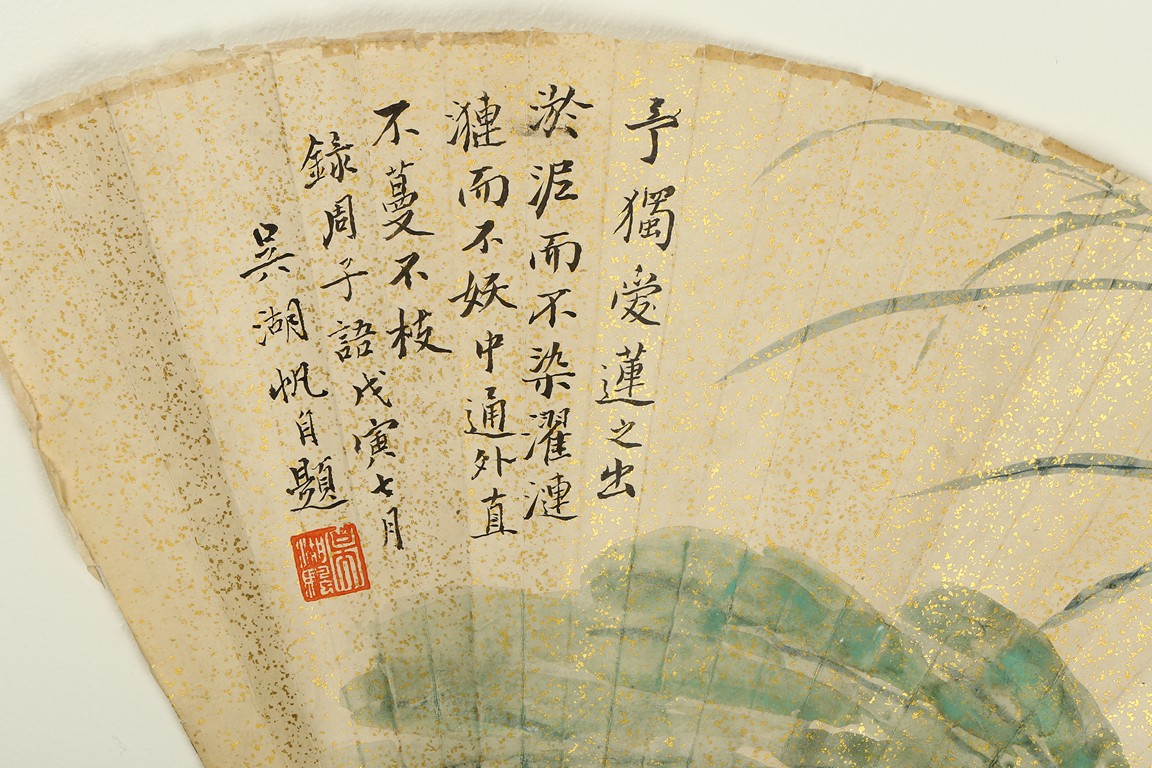 予獨愛蓮之出
淤泥而不染濯漣
漣而不妖中通外直
不蔓不枝
錄周子語戊寅七月
吳湖帆自題
吳湖颿